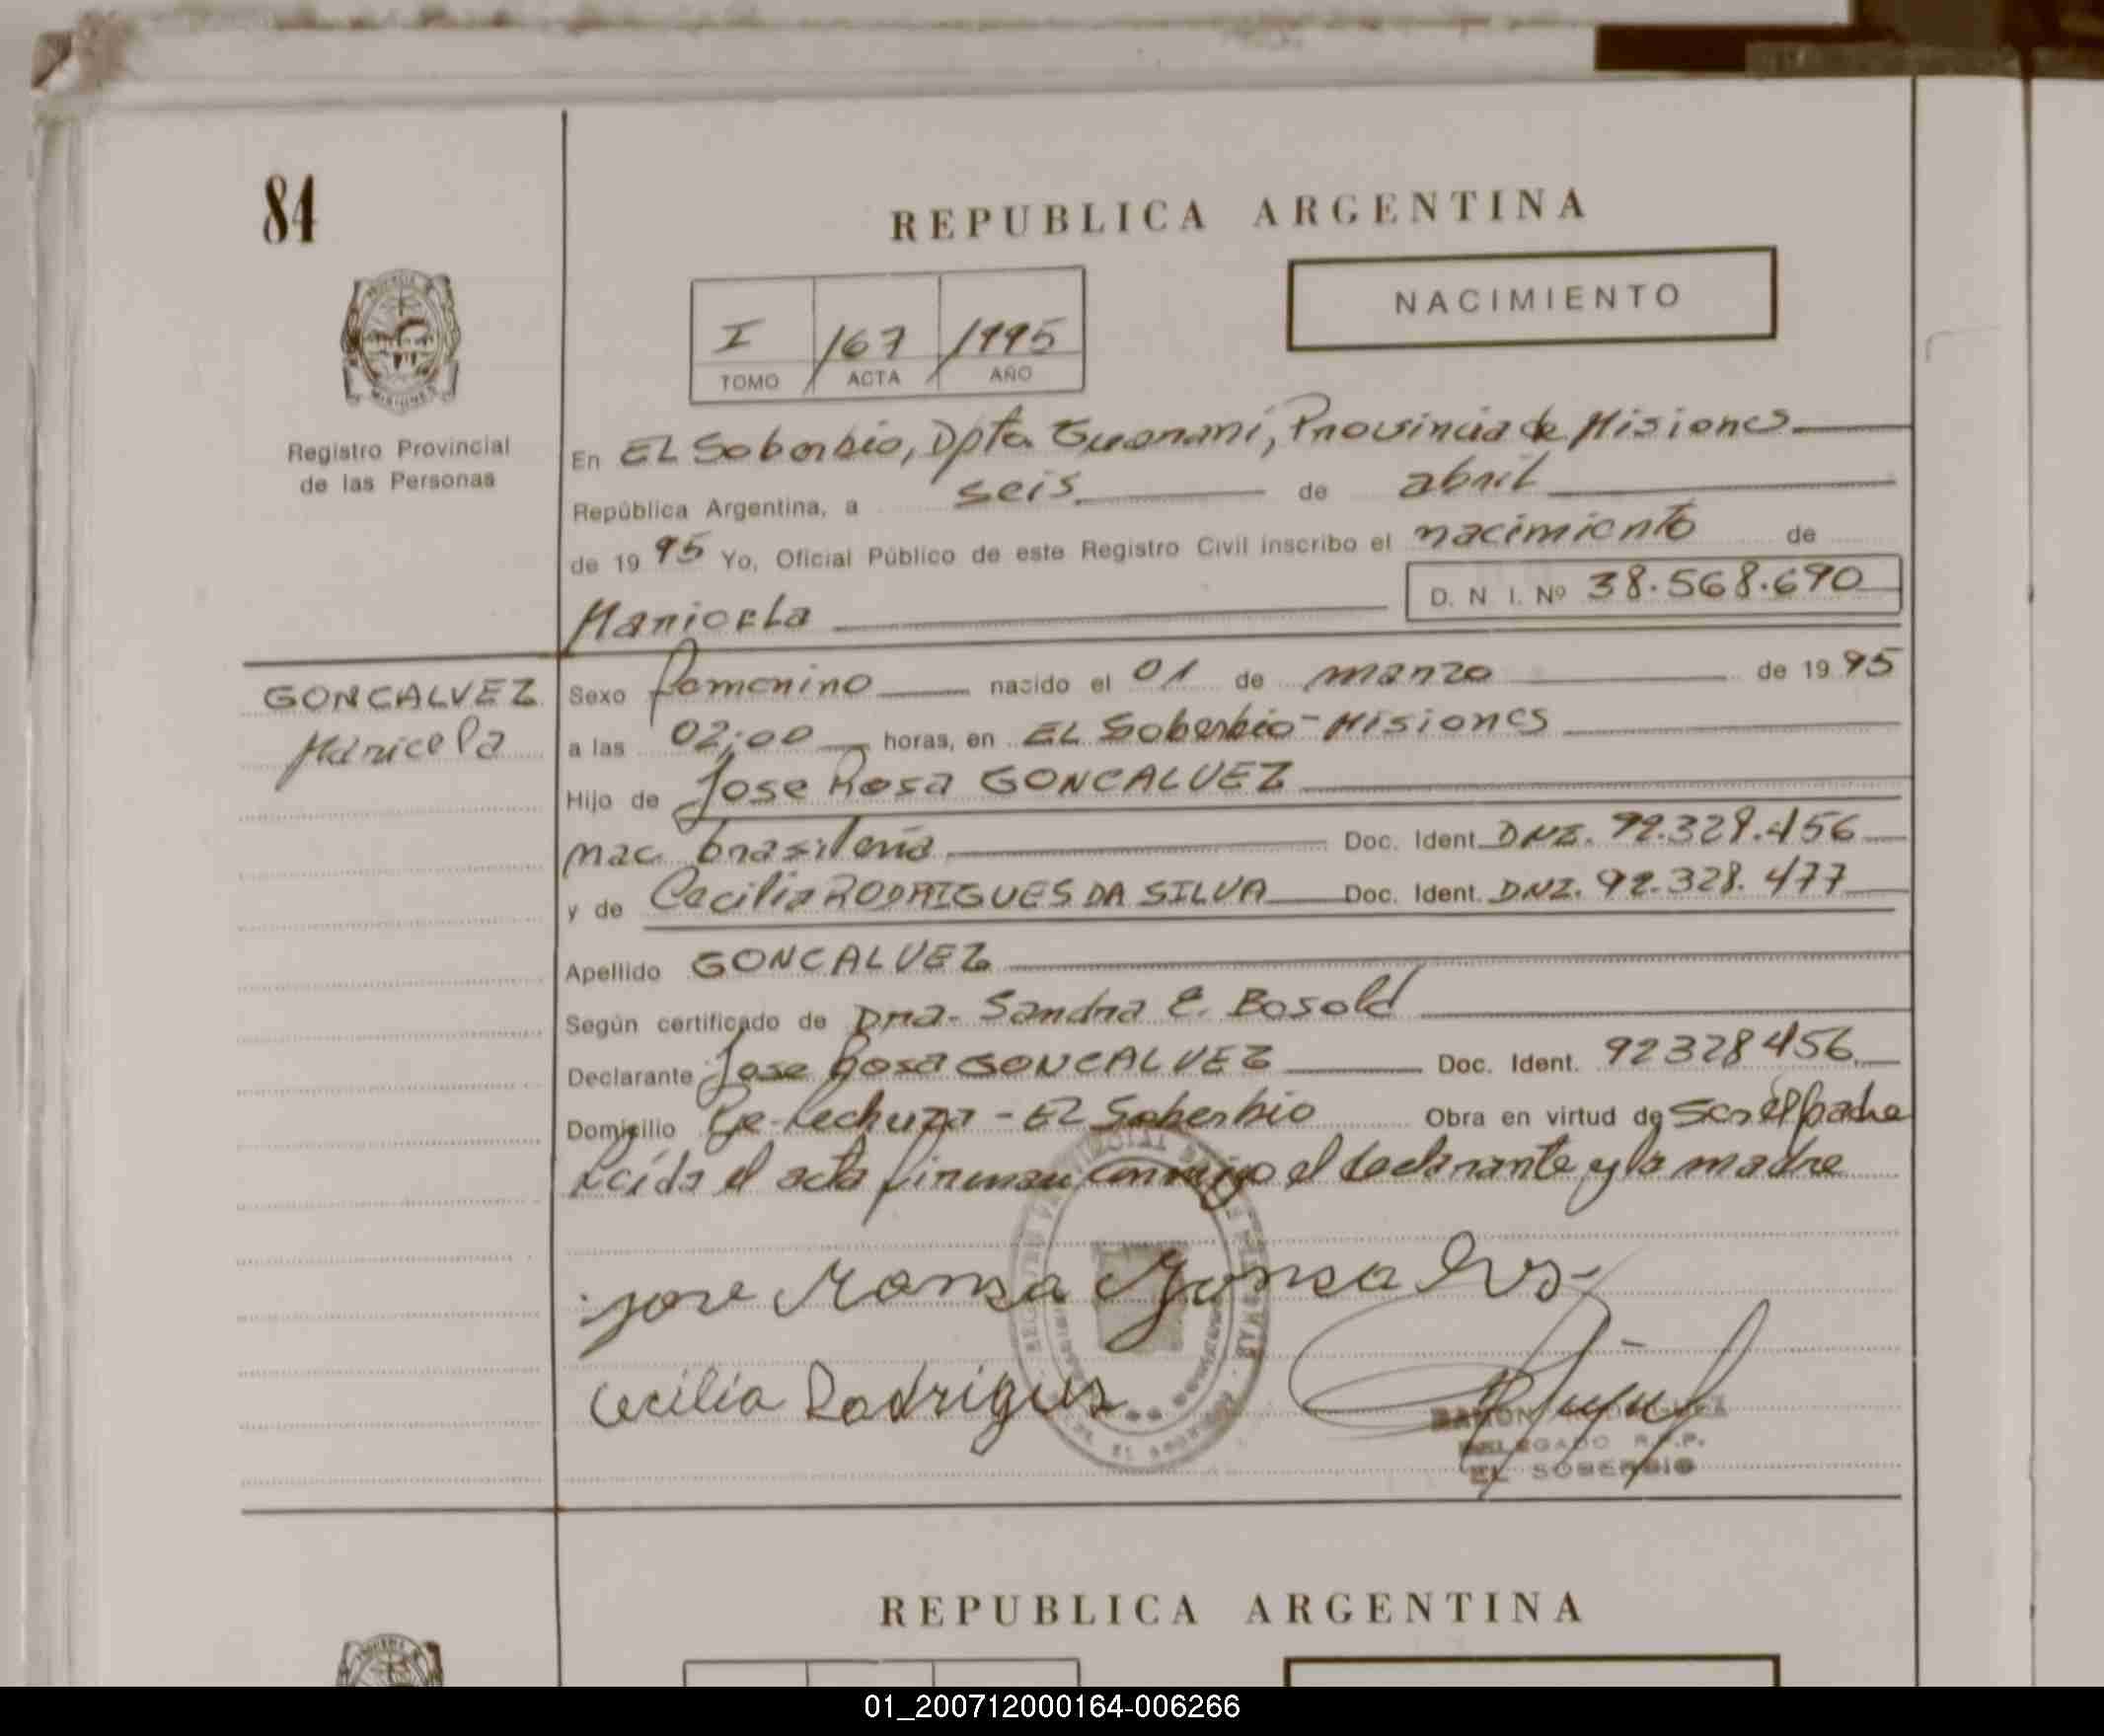 84
REPUBLICA ARGENTINA
NACIMIENTO
I /167 /1995
TOMO ACTA AÑO
Registro Provincial
de las Personas
En EL Soberbio, Dpto. Guarani, Provincia de Misiones
República Argentina, a seis de abril
de 19 95 Yo, Oficial Público de este Registro Civil inscribo el nacimiento de
Maricela
D. N. I. Nº 38.568.690
GONCALVEZ
Maricela
Sexo femenino nacido el 01 de marzo de 19 95
a las 02:00 horas, en EL Soberbio-Misiones
Hijo de Jose Rosa GONCALVEZ
nac. brasileña Doc. Ident. DNI. 92.328.456
y de Cecilia RODRIGUES DA SILVA Doc. Ident. DNI. 92.328.477
Apellido GONCALVEZ
Según certificado de Dra. Sandra E. Bosold
Declarante Jose Rosa GONCALVEZ Doc. Ident. 92328456
Domicilio Pje-Lechuza - El Soberbio Obra en virtud de ser el padre
Leída el acta firman conmigo el declarante y la madre
jose Ronsa Gonsalvs
Cecilia Rodrigues
RAMON
DELEGADO R.P.P.
EL SOBERBIO
REPUBLICA ARGENTINA
01_200712000164-006266